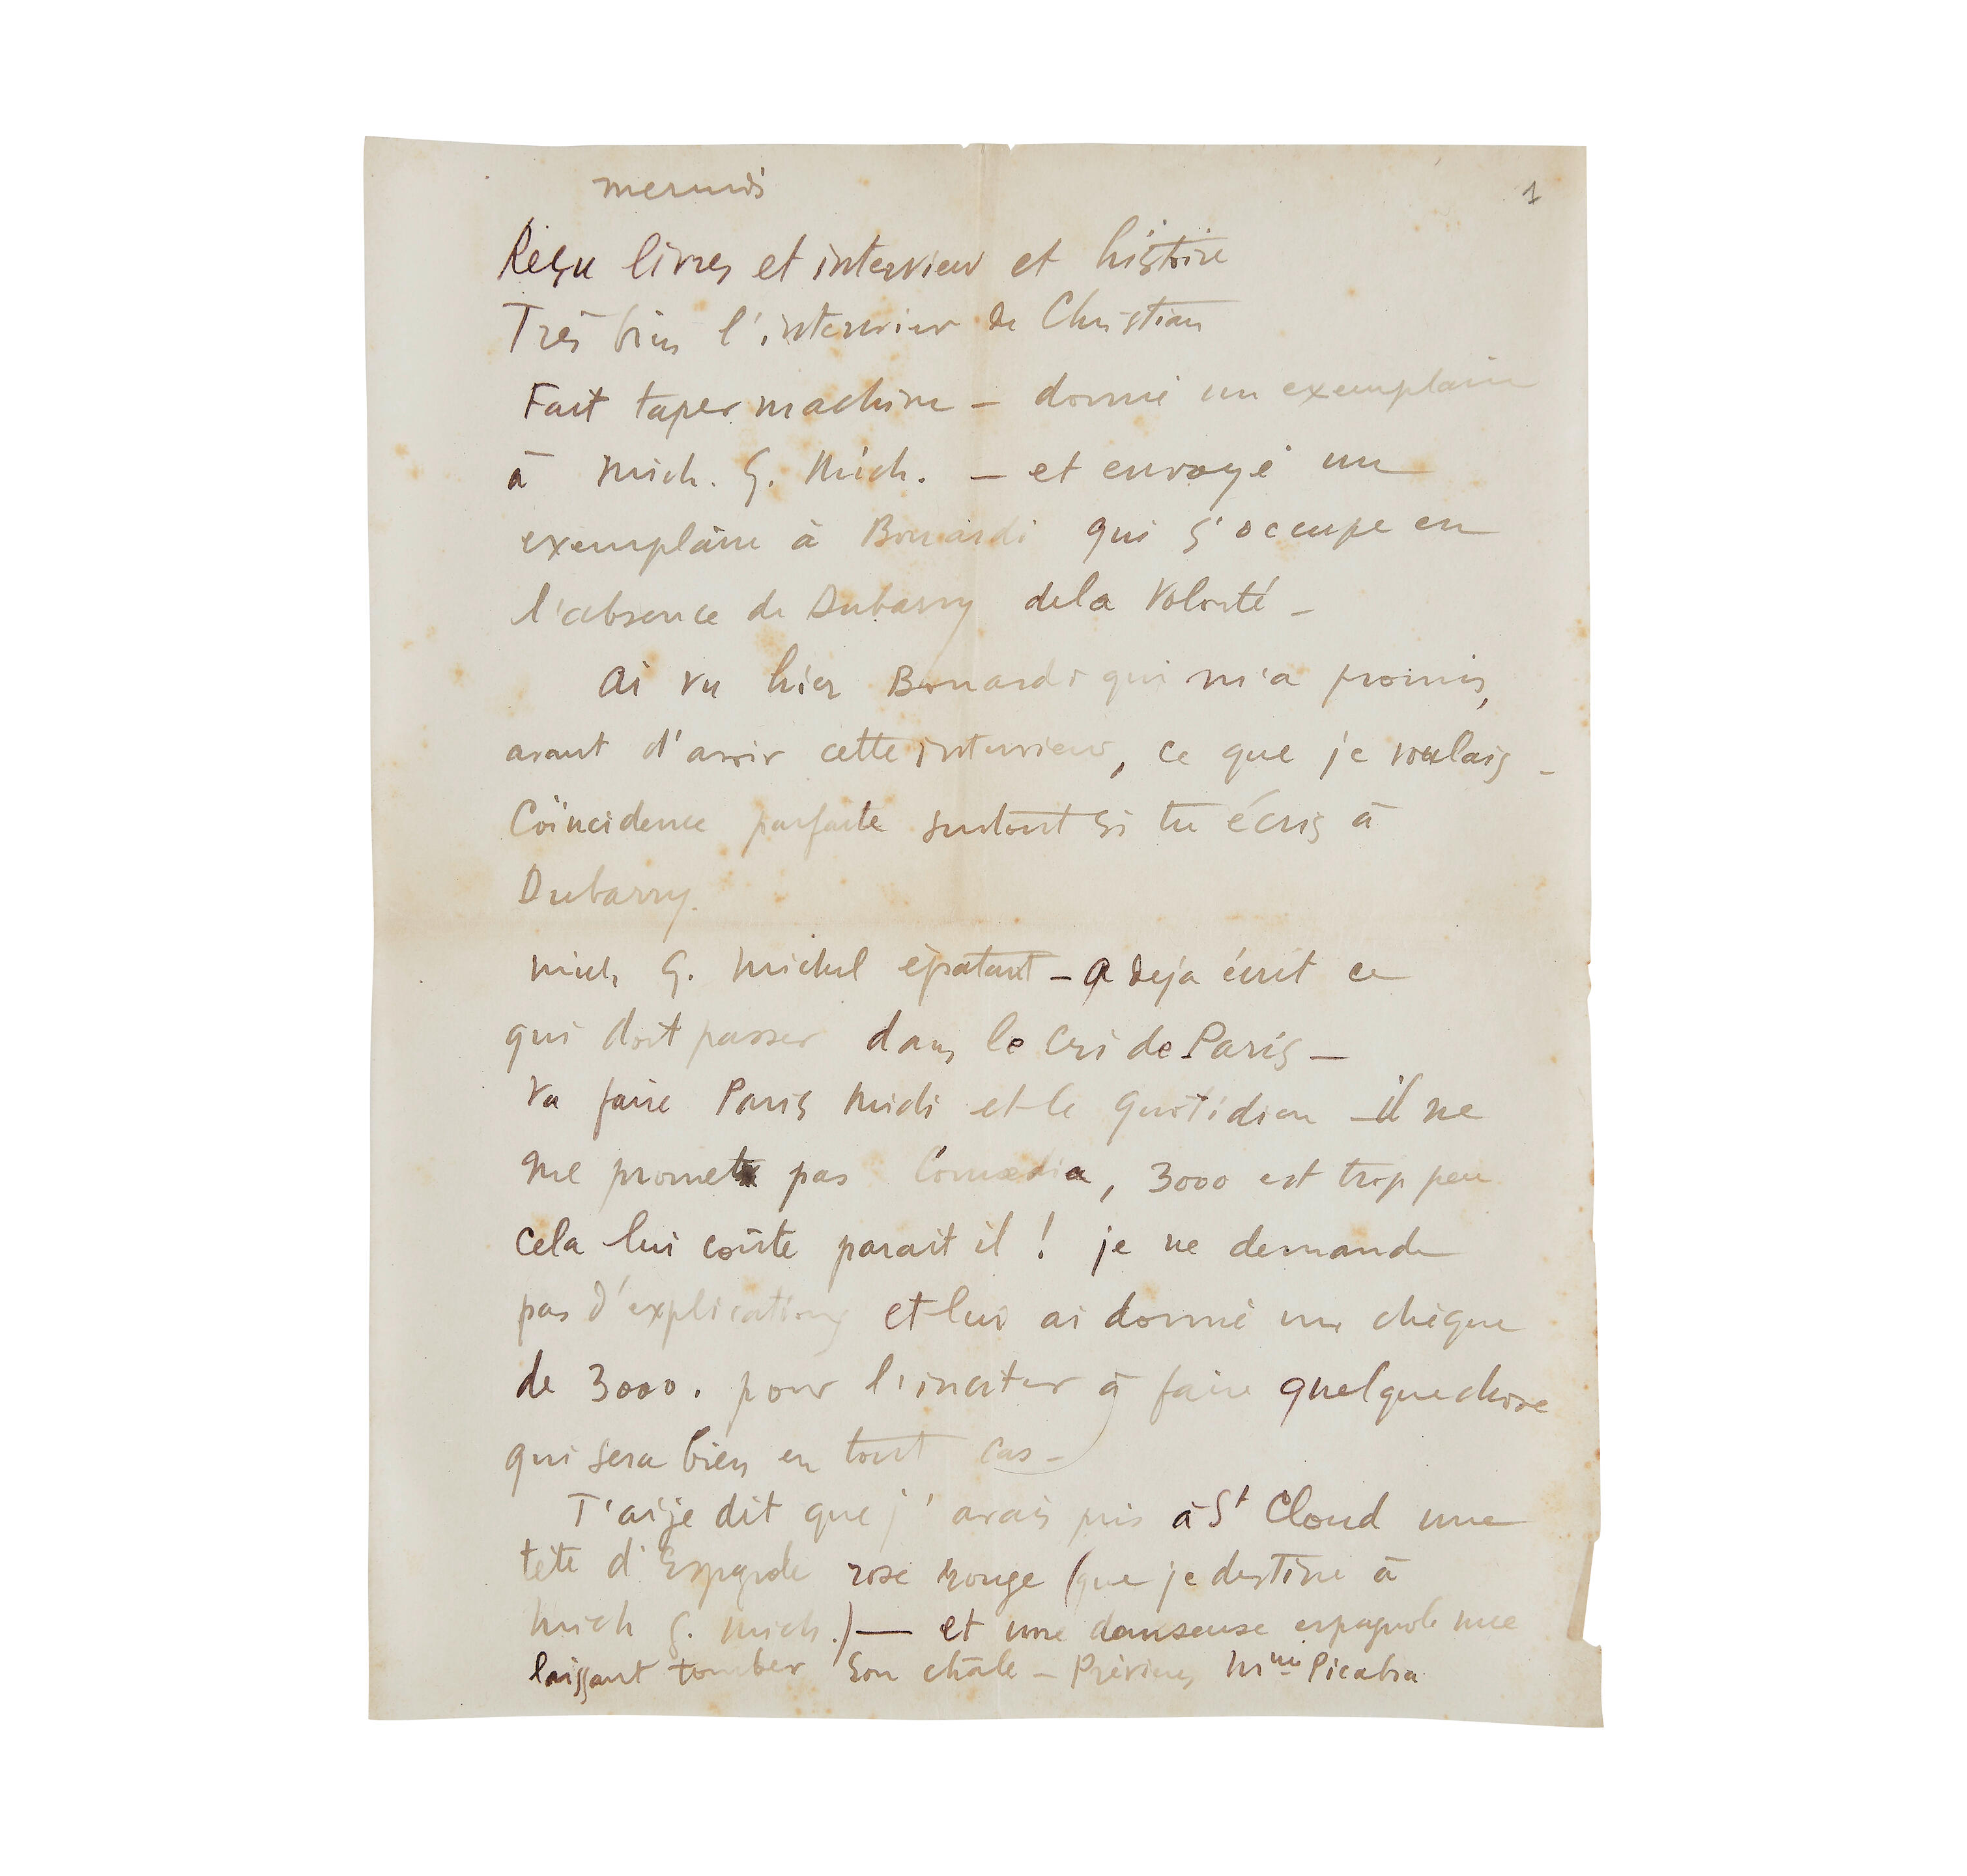 mercredi
1
Reçu livres et interview et histoire
Très bien l'interview de Christian
Fait taper machine – donné un exemplaire
à Mich. G. Mich. – et envoyé un
exemplaire à Bonardi qui s'occupe en
l'absence de Dubarry de la Volonté –
Ai vu hier Bonardi qui m'a promis,
avant d'avoir cette interview, ce que je voulais –
Coïncidence parfaite surtout si tu écris à
Dubarry.
Mich G. Michel épatant – a deja écrit ce
qui doit passer dans le Cri de Paris –
Va faire Paris Midi et le Quotidien – il ne
me promet pas Comœdia, 3000 est trop peu
cela lui coûte parait il ! je ne demande
pas d'explications et lui ai donné un chèque
de 3000. pour l'inciter à faire quelquechose
qui sera bien en tout cas –
T'ai je dit que j'avais pris à St Cloud une
tête d'Espagnole rose rouge (que je destine à
Mich G. Mich.) — et une danseuse espagnole nue
laissant tomber son châle – Préviens Mme Picabia